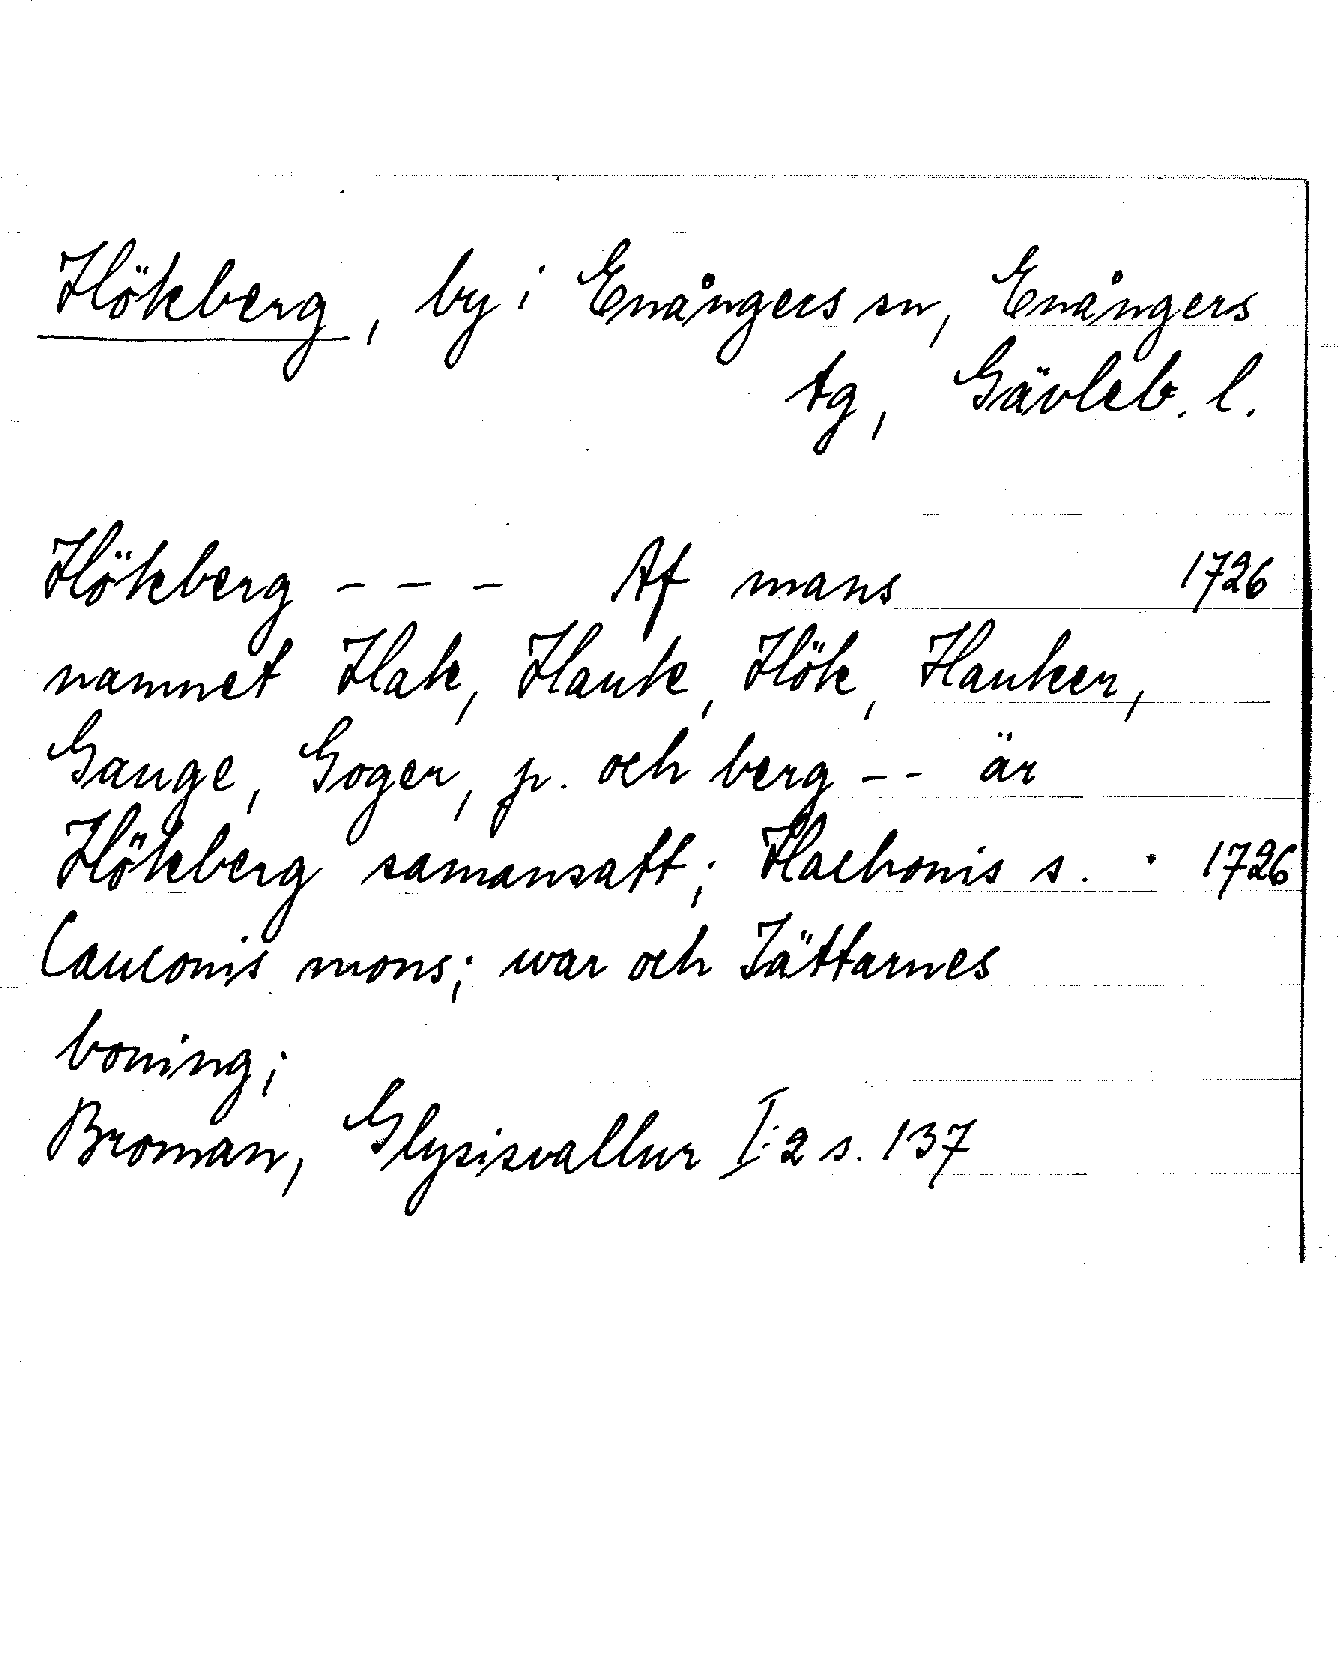 Hökberg, by i Enångers sn, Enångers
tg, Gävleb. l.
Hökberg - - - Af mans 1726
namnet Hak, Hauk, Hök, Hauker,
Gauge, Goger, p. och berg - - är
Hökberg samansatt; Hachonis s. 1726
Cauconis mons; war och Jättarnes
boning;
Broman, Glysisvallur I:2 s. 137